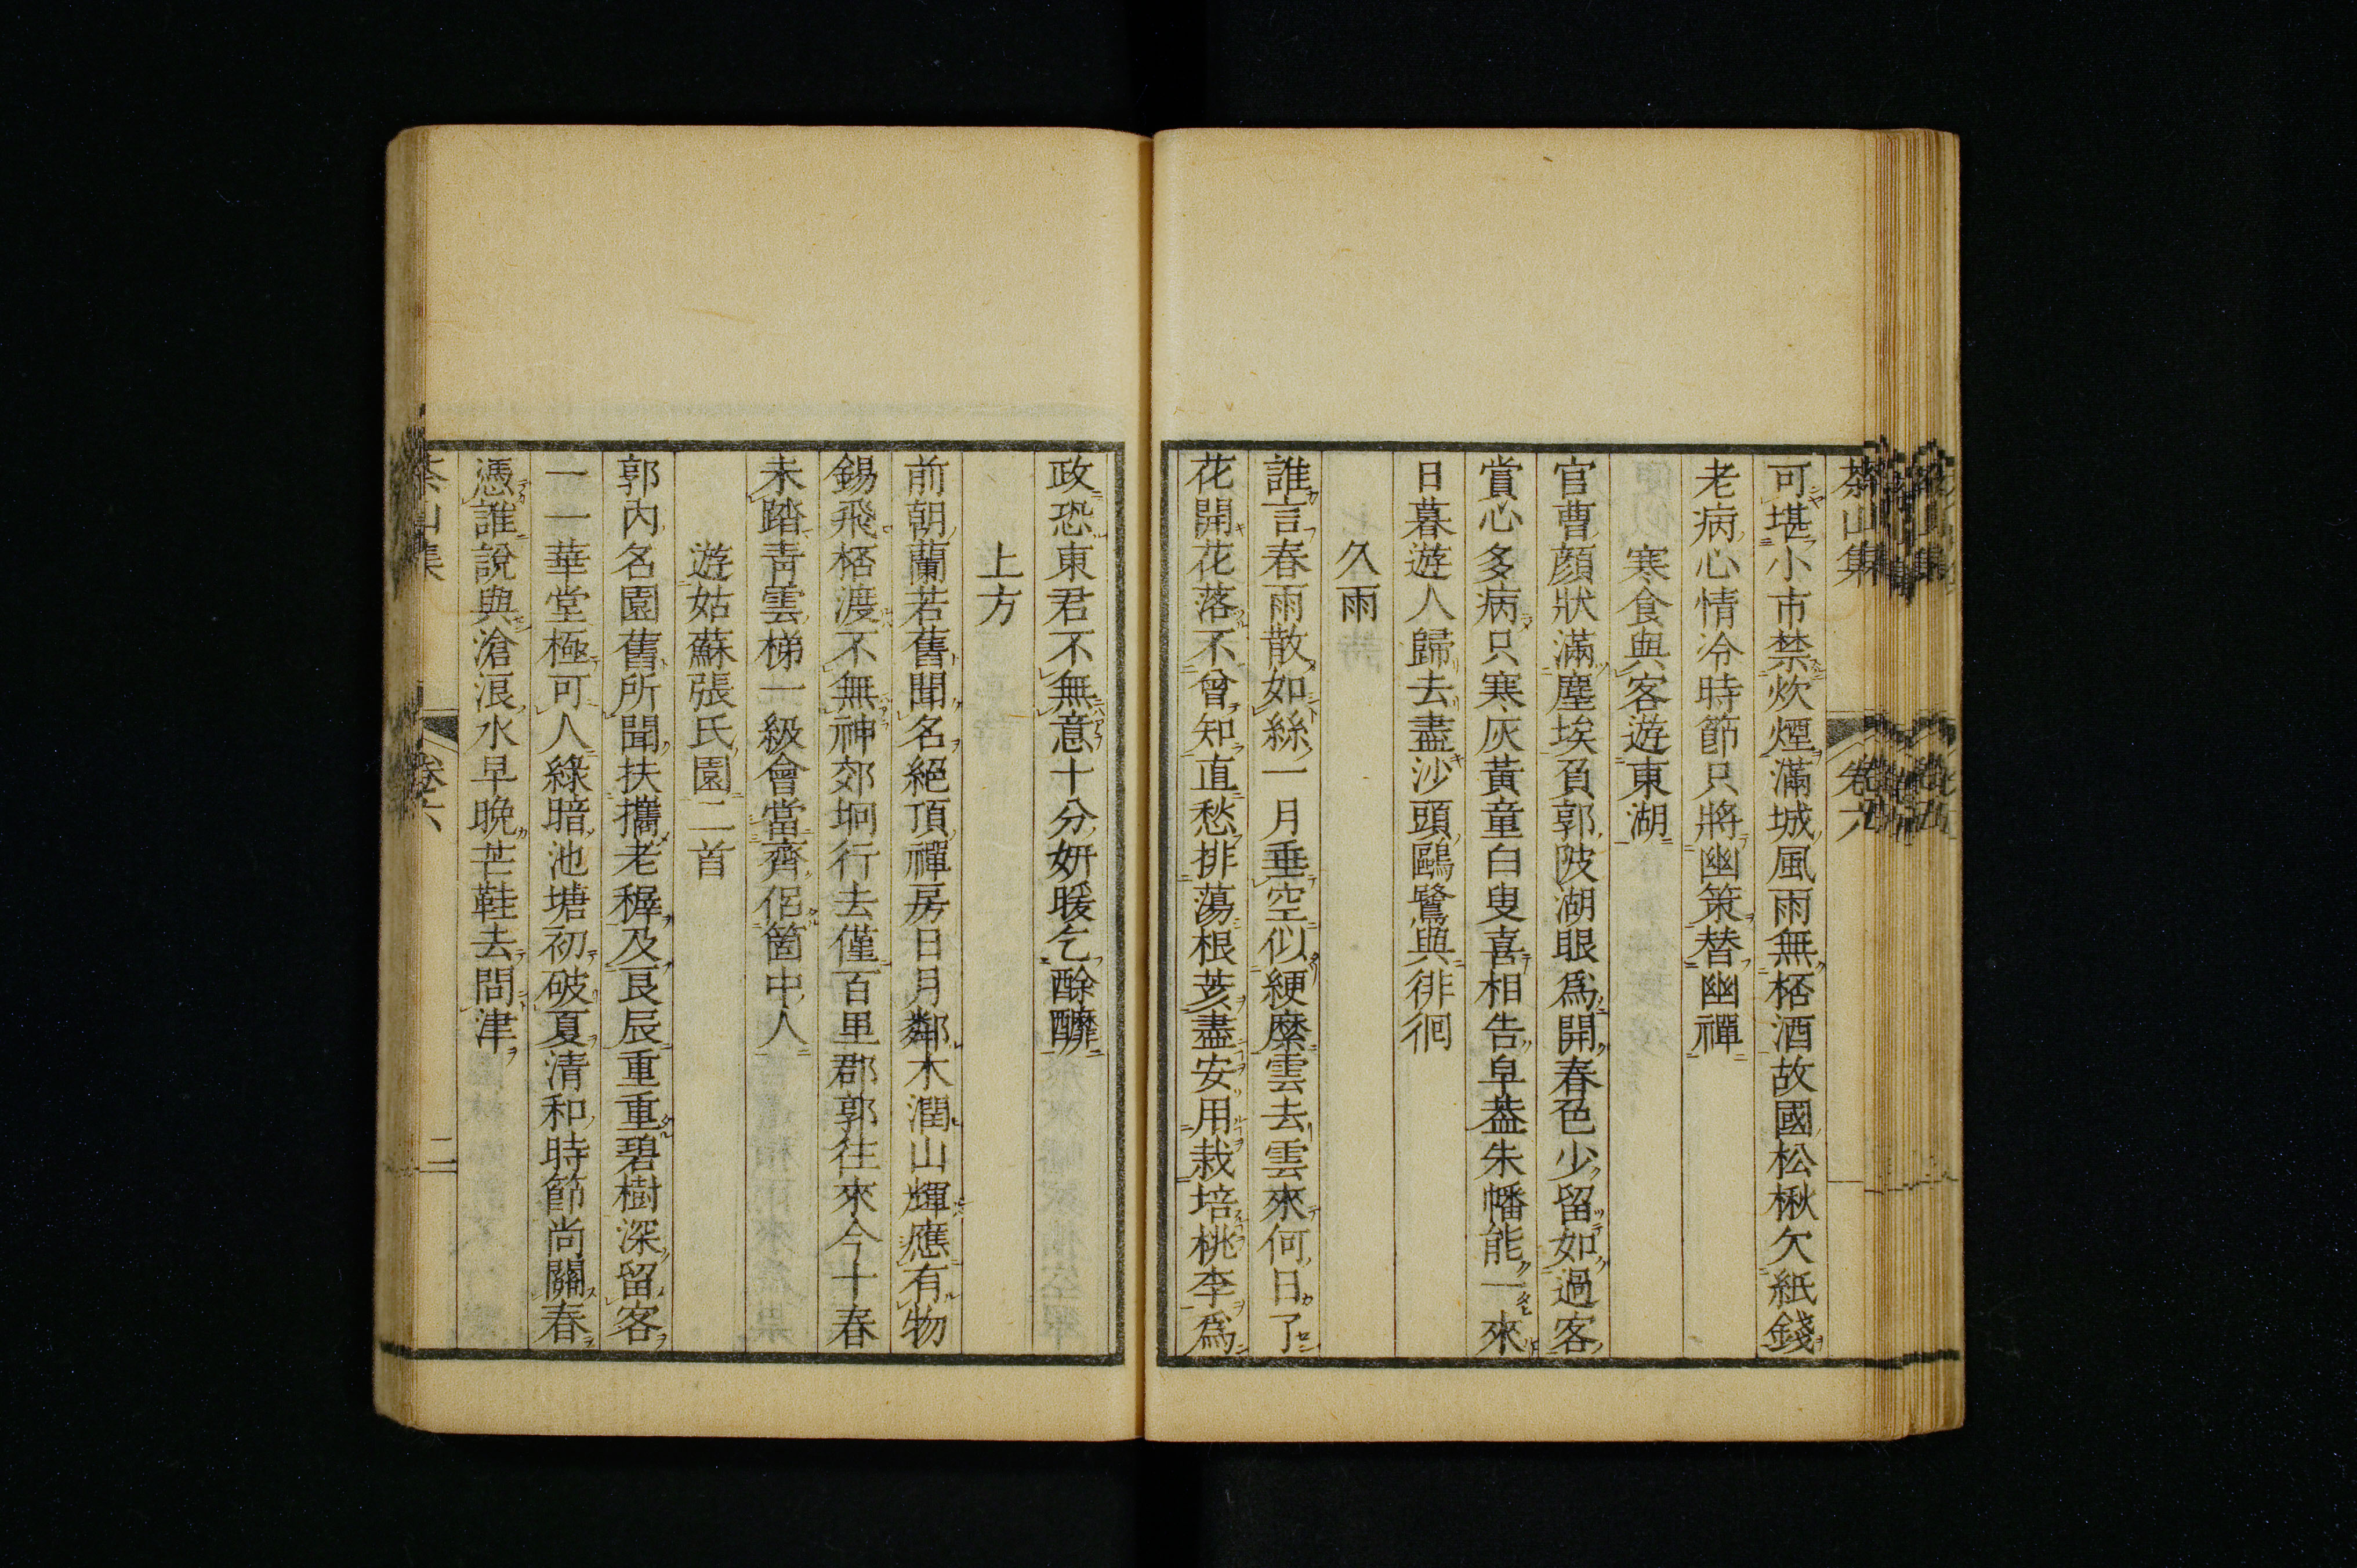 茶山集 卷六
可堪小市禁炊煙滿城風雨無桮酒故國松楸欠紙錢
老病心情冷時節只將幽策替幽禪
寒食與客遊東湖
官曹顏狀滿塵埃負郭陂湖眼爲開春色少留如過客
賞心多病只寒灰黃童白叟喜相告皁葢朱幡能一來
日暮遊人歸去盡沙頭鷗鷺與徘徊
久雨
誰言春雨散如絲一月垂空似綆縻雲去雲來何日了
花開花落不曾知直愁排蕩根荄盡安用栽培桃李爲
政恐東君不無意十分妍暖乞酴醿
上方
前朝蘭若舊聞名絕頂禪房日月鄰木潤山輝應有物
錫飛桮渡不無神郊坰行去僅百里郡郭往來今十春
未踏靑雲梯一級會當齊侶箇中人
遊姑蘇張氏園二首
郭內名園舊所聞扶攜老穉及良辰重重碧樹深留客
一一華堂極可人綠暗池塘初破夏清和時節尚關春
憑誰說與滄浪水早晚芒鞋去問津
茶山集 卷六 二